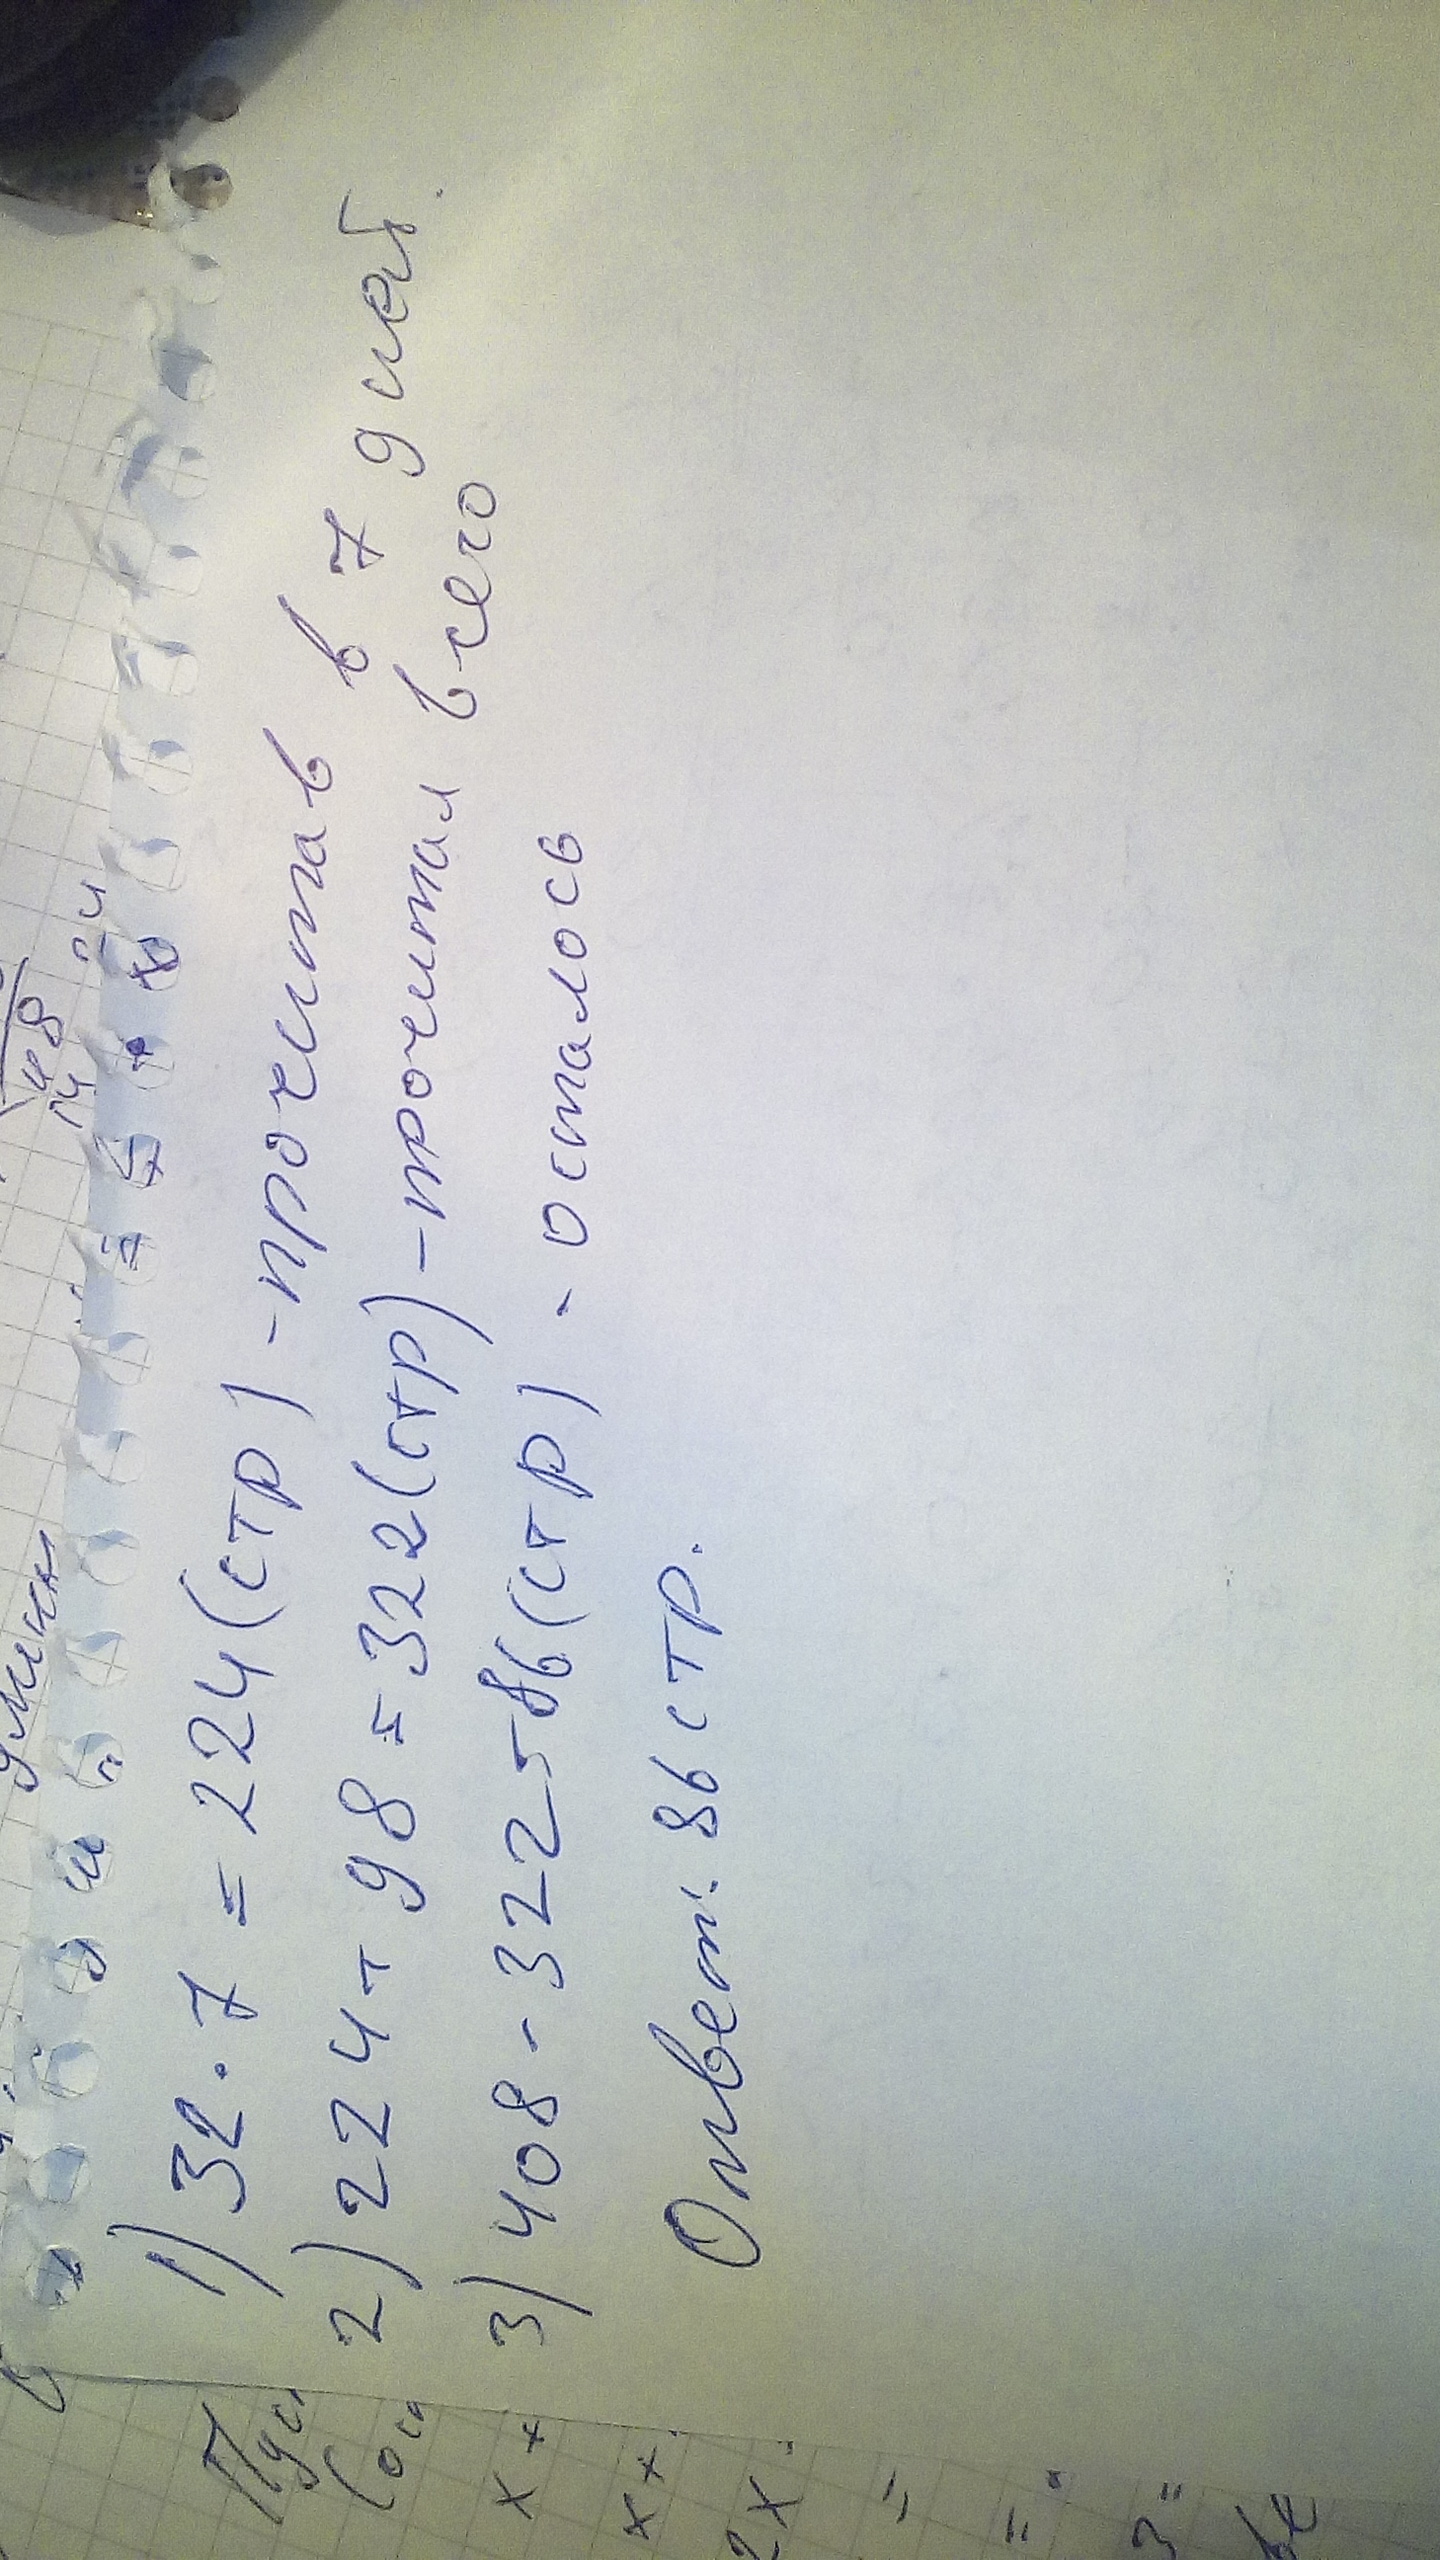 1) 32 · 7 = 224 (стр) - прочитав в 7 дней.
2) 224 + 98 = 322 (стр) - прочитал всего
3) 408 - 322 = 86 (стр) - осталось
Ответ: 86 стр.